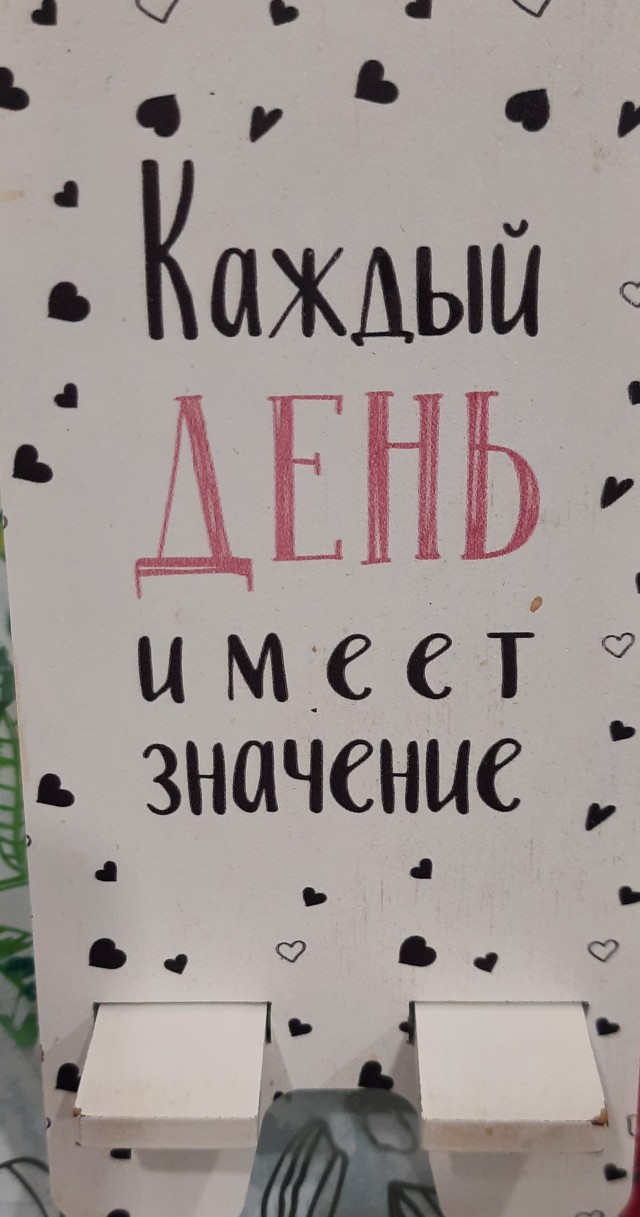 Каждый
ДЕНЬ
имеет
значение